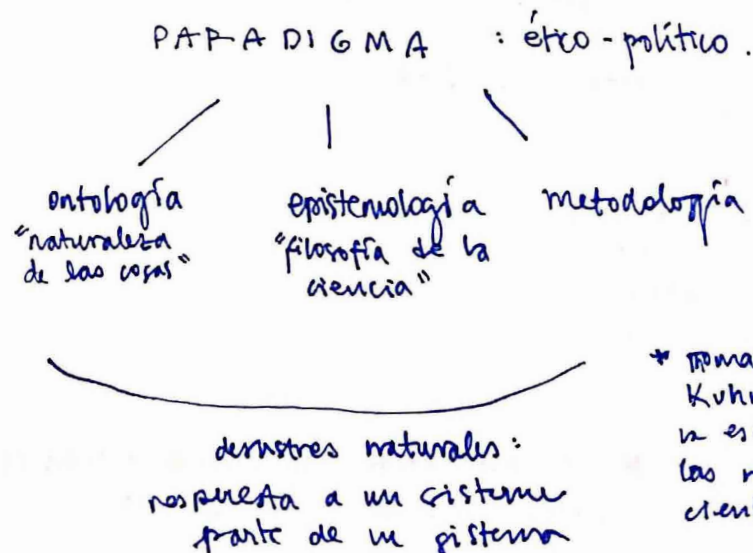 PARADIGMA : ético-político.
ontología
"naturaleza
de las cosas"
epistemología
"filosofía de la
ciencia"
metodología
desastres naturales:
respuesta a un sistema
parte de un sistema
* Thoma
Kuhn
la es
las r
cient